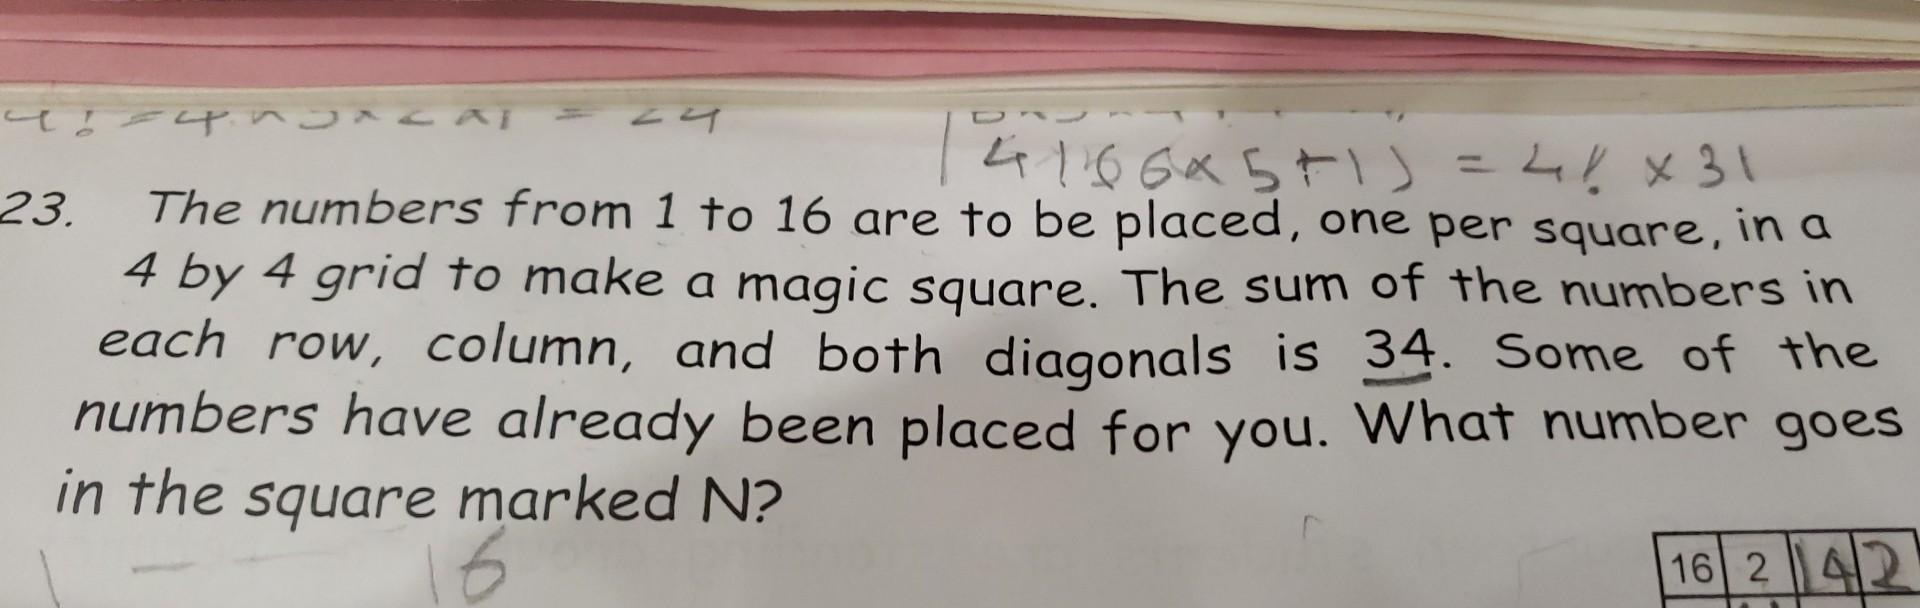 = 24
4! (6x5+1) = 4! x 31
23. The numbers from 1 to 16 are to be placed, one per square, in a
4 by 4 grid to make a magic square. The sum of the numbers in
each row, column, and both diagonals is 34. Some of the
numbers have already been placed for you. What number goes
in the square marked N?
16
16 2 14 2